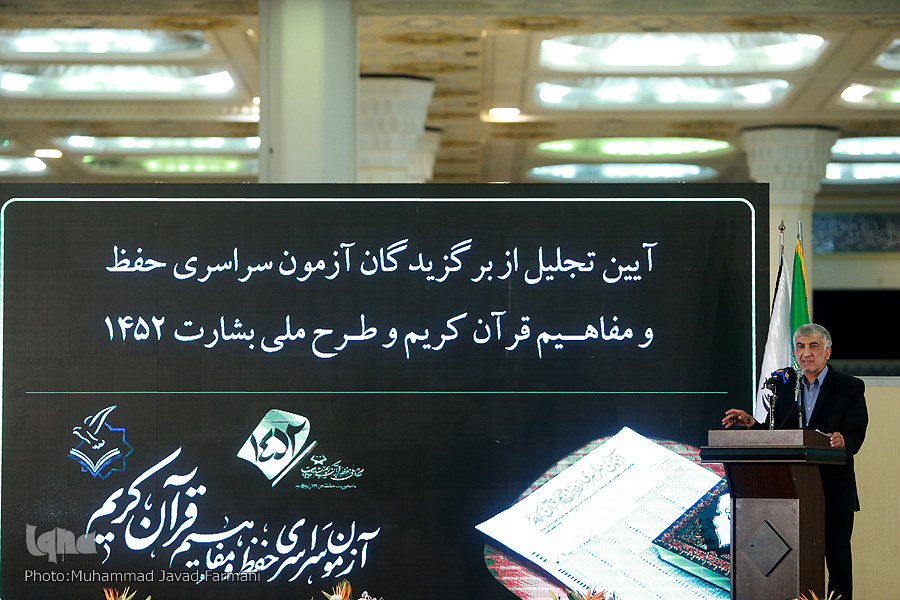 آیین تجلیل از برگزیدگان آزمون سراسری حفظ
و مفاهیم قرآن کریم و طرح ملی بشارت ۱۴۵۲
۱۴۵۲
آزمون سراسری حفظ و مفاهیم قرآن کریم
iqna
Photo:Muhammad Javad Farmani